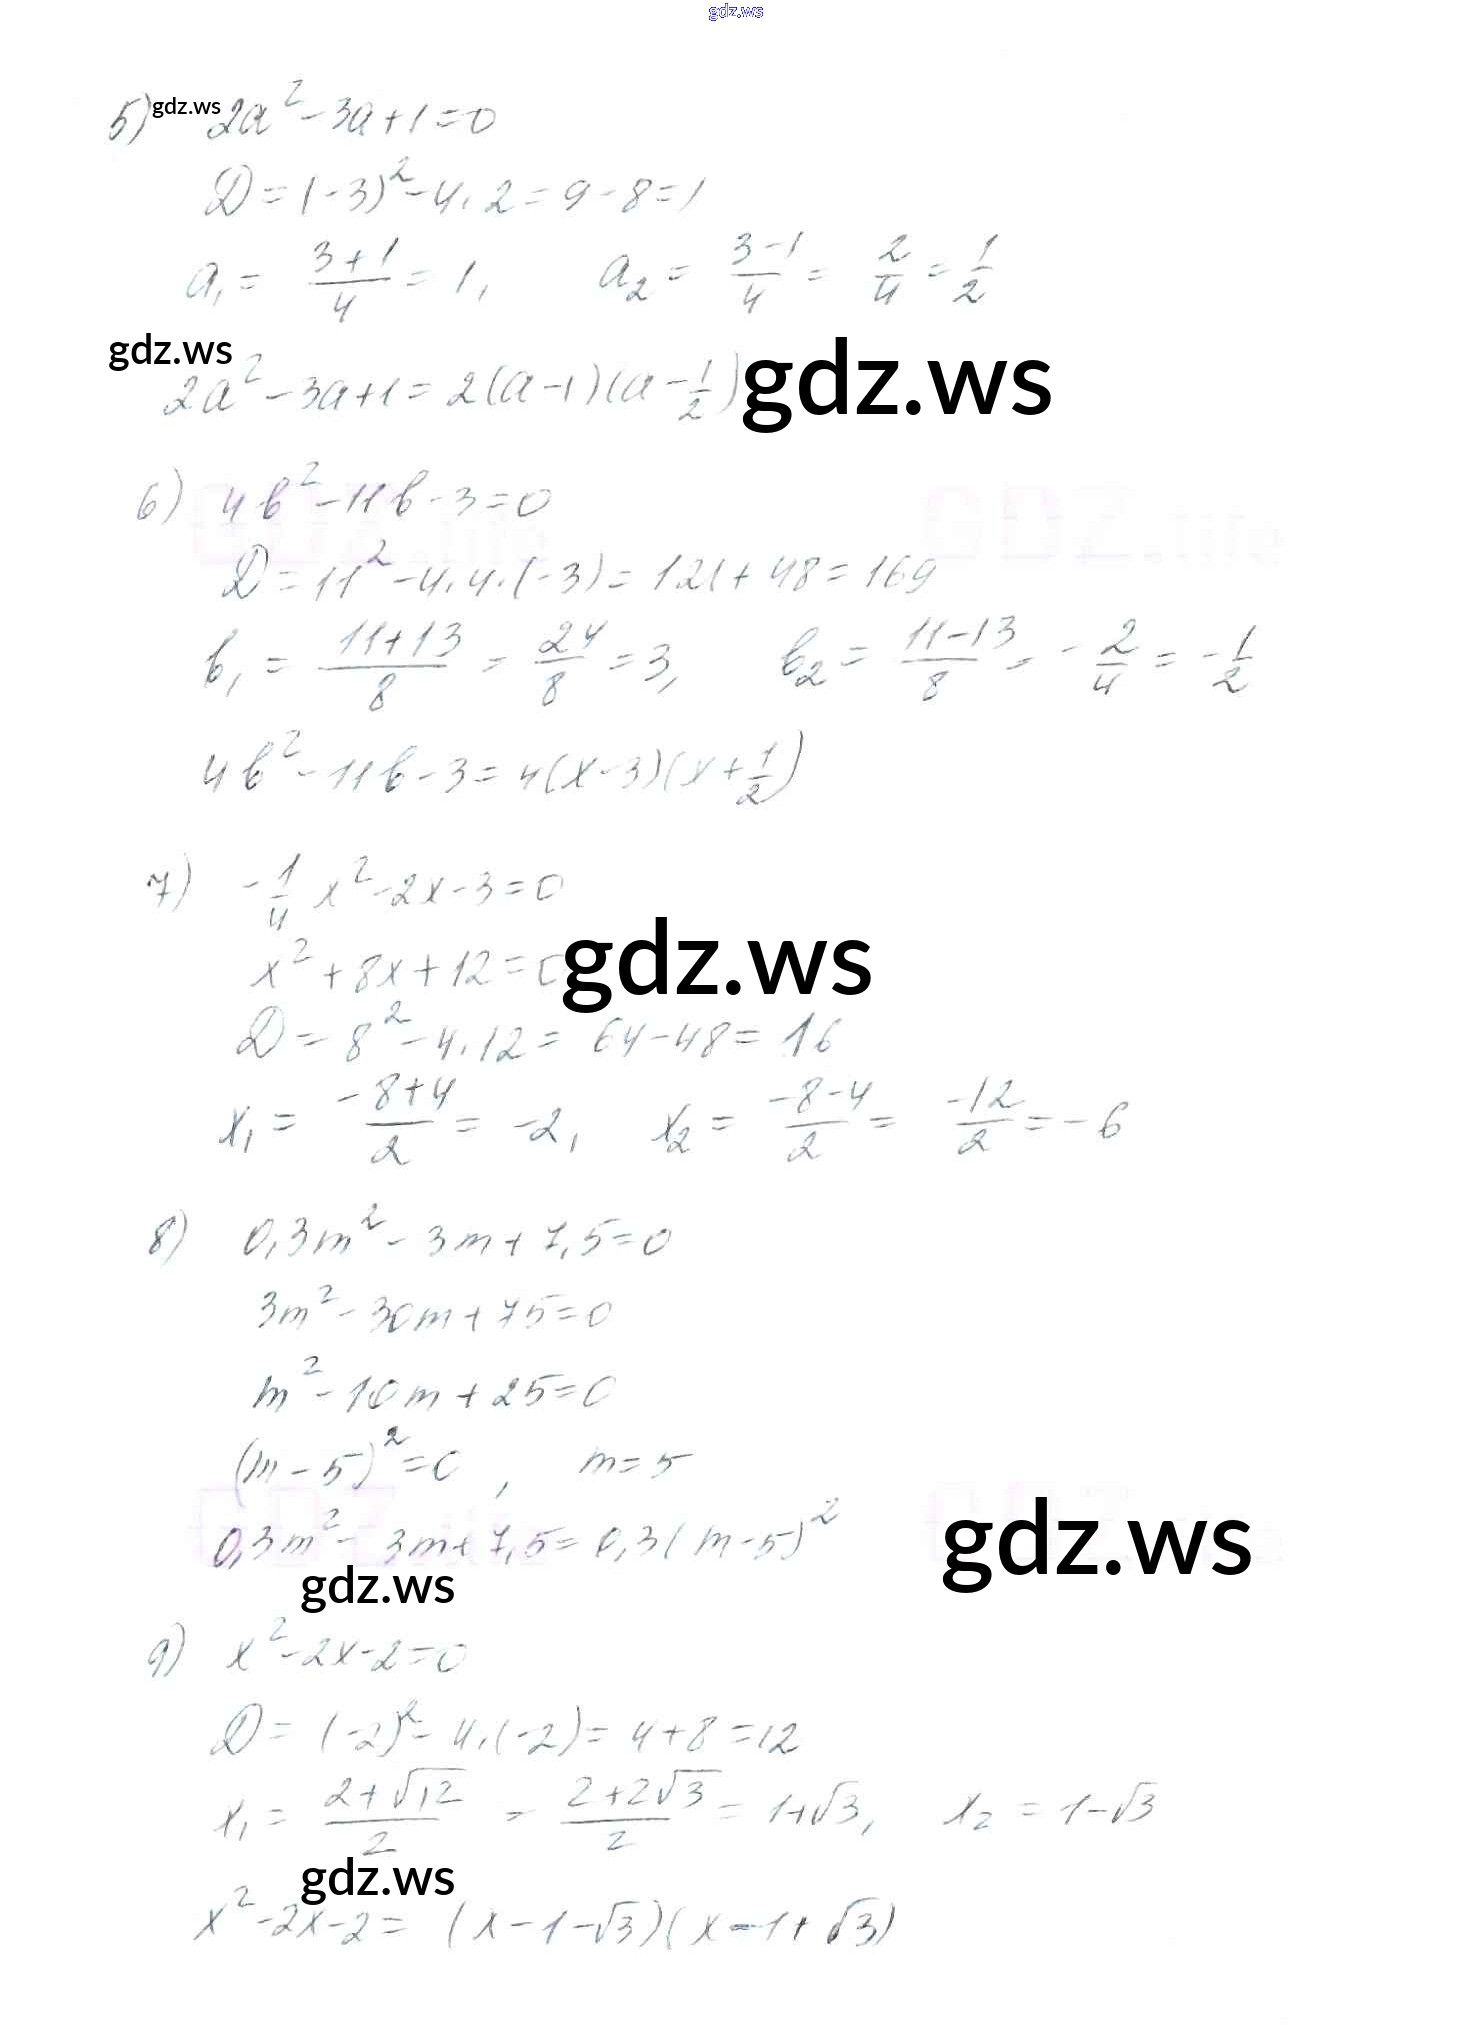 gdz.ws
5) gdz.ws 2a² - 3a + 1 = 0
D = (-3)² - 4 · 2 = 9 - 8 = 1
a₁ = (3+1)/4 = 1, a₂ = (3-1)/4 = 2/4 = 1/2
gdz.ws
2a² - 3a + 1 = 2(a - 1)(a - 1/2) gdz.ws
6) 4b² - 11b - 3 = 0
GDZ.life GDZ.life
D = 11² - 4 · 4 · (-3) = 121 + 48 = 169
b₁ = (11+13)/8 = 24/8 = 3, b₂ = (11-13)/8 = -2/4 = -1/2
4b² - 11b - 3 = 4(x - 3)(x + 1/2)
7) -1/4 x² - 2x - 3 = 0
x² + 8x + 12 = 0 gdz.ws
D = 8² - 4 · 12 = 64 - 48 = 16
x₁ = (-8+4)/2 = -2, x₂ = (-8-4)/2 = -12/2 = -6
8) 0,3m² - 3m + 7,5 = 0
3m² - 30m + 75 = 0
m² - 10m + 25 = 0
(m - 5)² = 0, m = 5
GDZ.life GDZ.life
0,3m² - 3m + 7,5 = 0,3(m - 5)² gdz.ws
gdz.ws
9) x² - 2x - 2 = 0
D = (-2)² - 4 · (-2) = 4 + 8 = 12
x₁ = (2+√12)/2 = (2+2√3)/2 = 1+√3, x₂ = 1-√3
gdz.ws
x² - 2x - 2 = (x - 1 - √3)(x - 1 + √3)